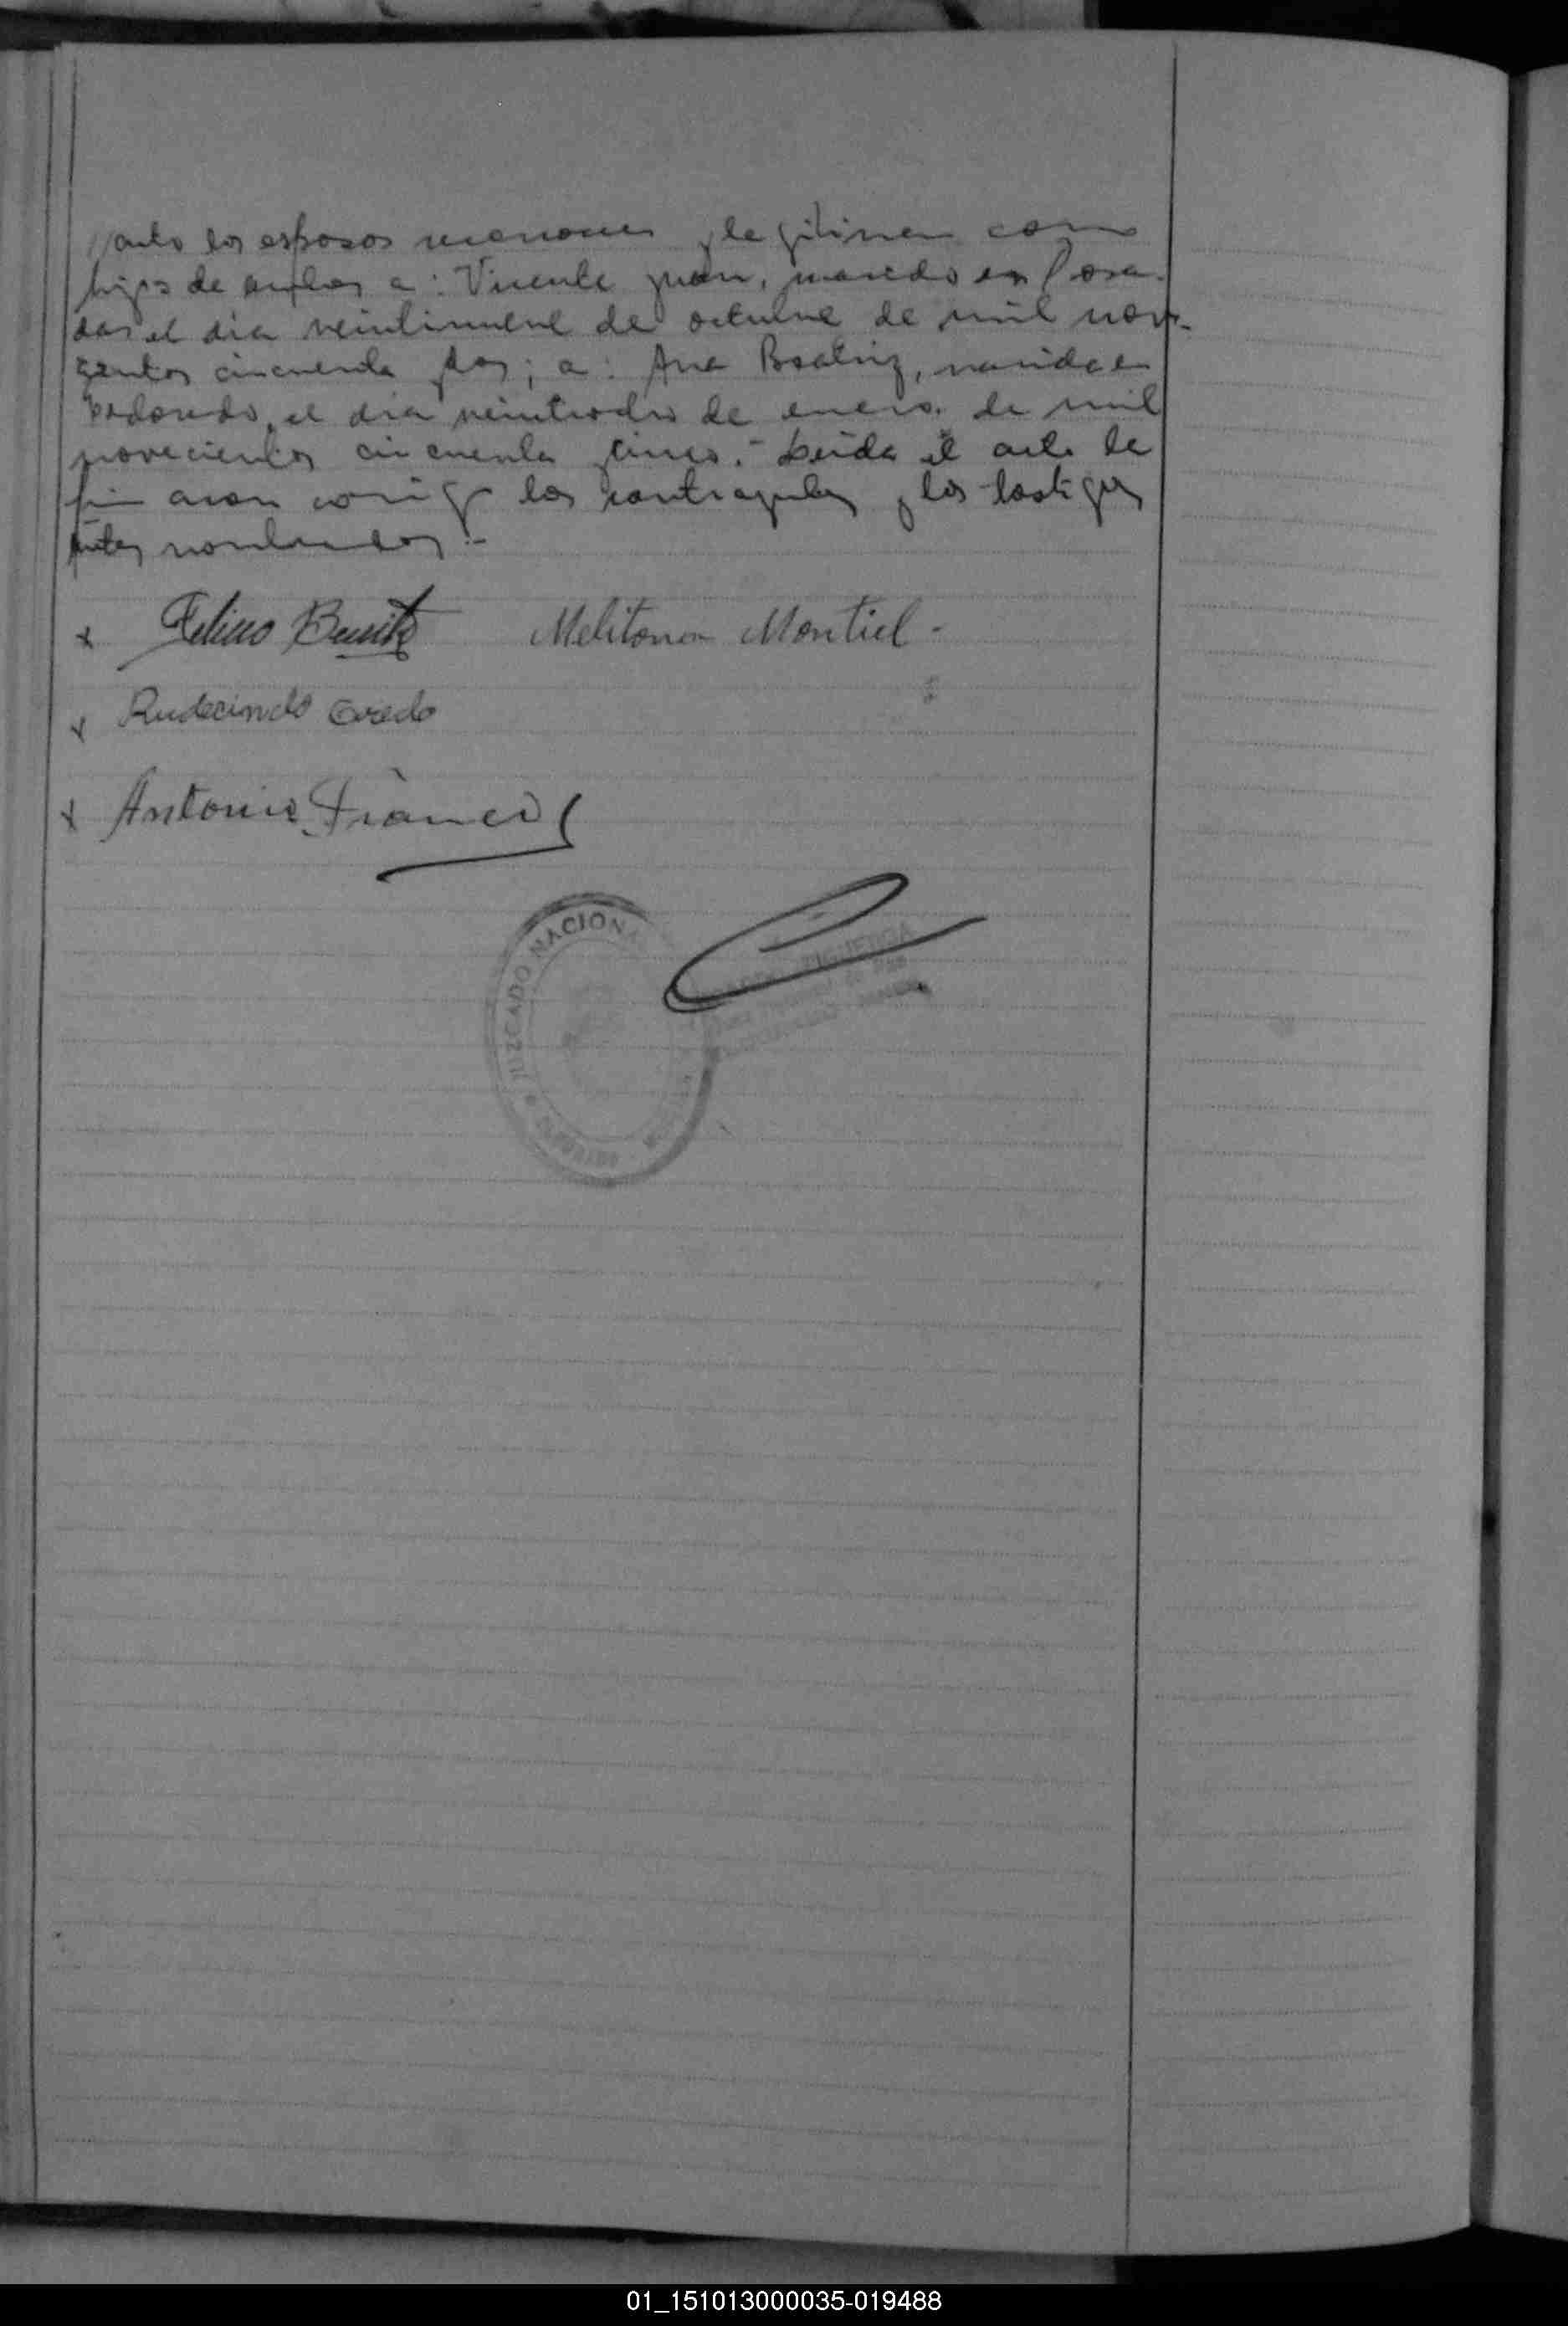 acto los esposos reconocen y legitiman como
hijos de ambos a: Vicente Juan, nacido en Posa-
das el dia veintinueve de octubre de mil nove-
cientos cincuenta y dos; a: Ana Beatriz, nacida en
el dia veintiocho de enero de mil
novecientos cincuenta y cinco.- Leida el acta la
firmaron conmigo los contrayentes y los testigos
antes nombrados.-
x Benito Melitona Montiel -
x Rudecindo Oviedo
x Antonio Franco
JUZGADO NACIONAL
FIGUEROA
01_151013000035-019488